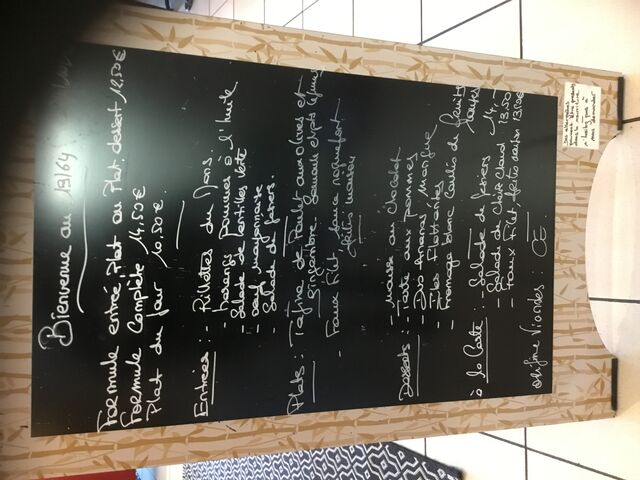 Bienvenue au 19/64
Formule entrée, Plat ou Plat dessert 12.50€
Formule Complète 14.50€
Plat du jour 10.50€
Entrées : - Rillettes du Mans
- harengs pommes à l'huile
- Salade de lentilles verte
- oeuf mayonnaise
- Salade de gésiers.
Plats : Tajine de Poulet aux olives et
gingembre. Semoule
- Faux Filet, sauce roquefort
frites maison
Desserts : - mousse au chocolat
- tarte aux pommes
- Duo Ananas / mangue
- Iles Flottantes
- Fromage blanc Coulis de fruits
rouges
à la Carte : - Salade de gésiers 14.-
- Salade de Chèvre Chaud 13.50
- Faux Filet, frites maison 13.20€
origine Viandes : CE